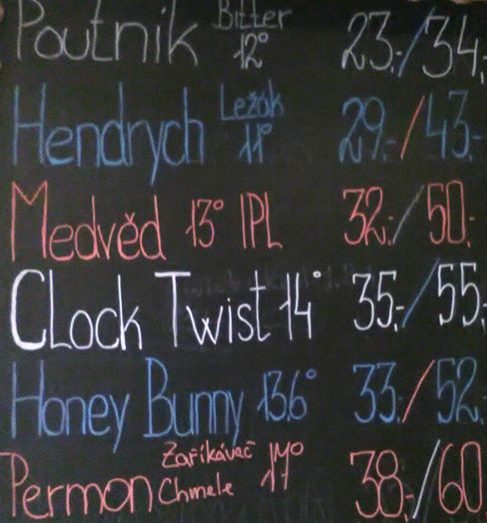 Poutnik Bitter 12° 23,-/34,-
Hendrych Ležák 11° 29,-/43,-
Medvěd 13° IPL 32,-/50,-
CLock Twist 14° 35,-/55,-
Honey Bunny 13,6° 33,-/52,-
Permon Zaříkávač Chmele 17° 38,-/60